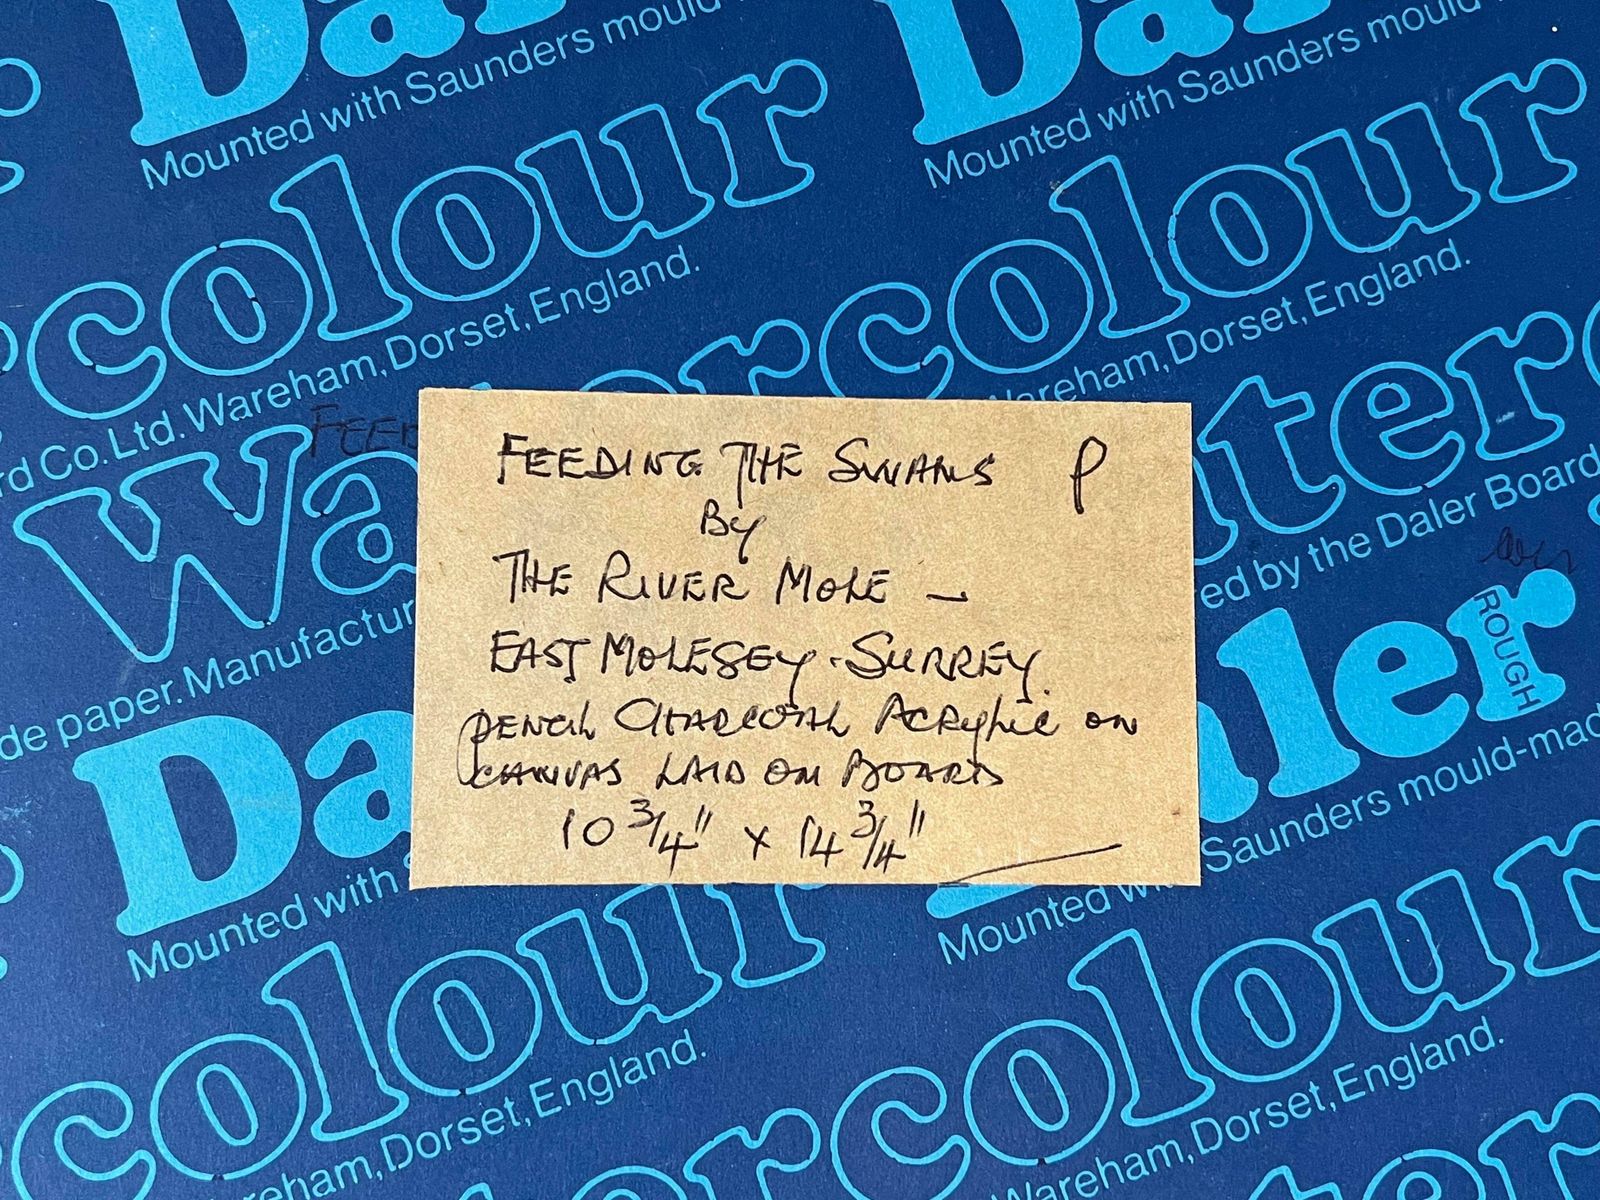 Da
Da
Mounted with Saunders mould
Mounted with Saunders mou
r
colour
colour
rd Co. Ltd. Wareham, Dorset, England.
Wareham, Dorset, England.
Water
ter
FEED
FEEDING THE SWANS P
By
THE RIVER MOLE –
EAST MOLESEY . SURREY.
PENCIL CHARCOAL ACRYLIC ON
CANVAS LAID ON BOARD
10 3/4" x 14 3/4"
de paper. Manufactur
ed by the Daler Board
Da
aler
ROUGH
Mounted with
Mounted w
Saunders mould-mad
colour
colour
ham, Dorset, England.
Wareham, Dorset, England.